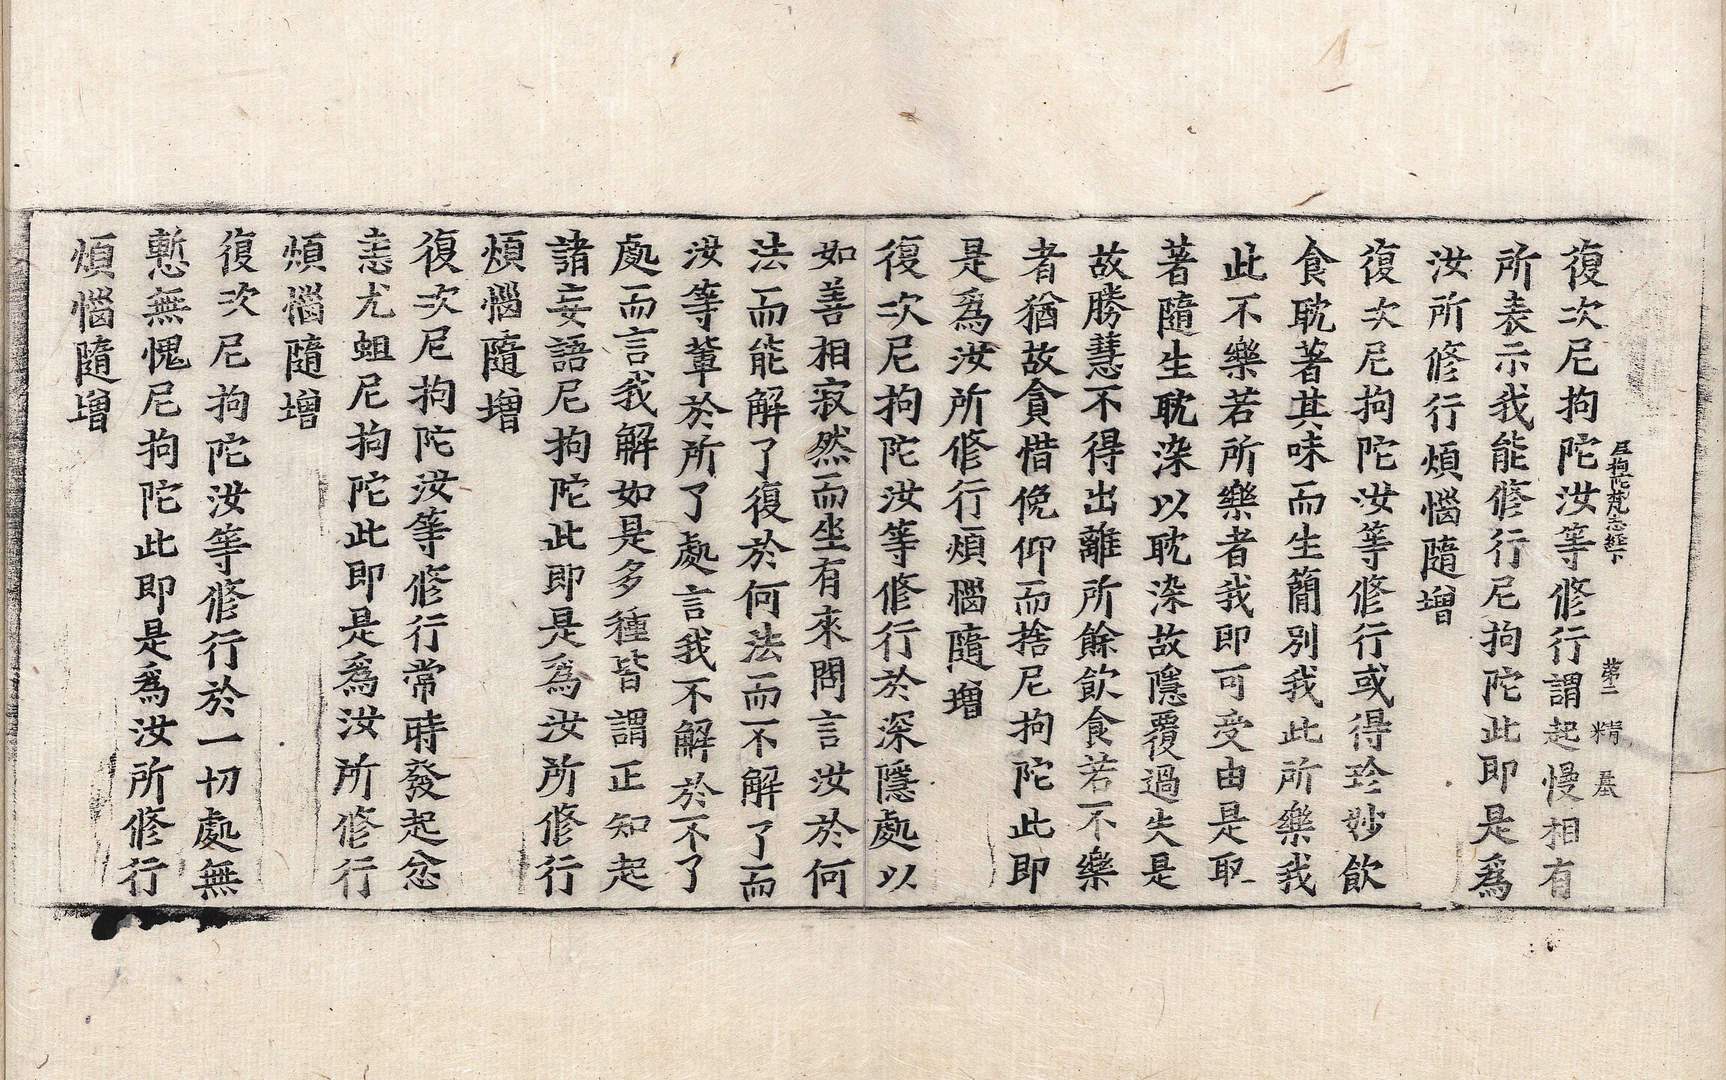 復次尼拘陀汝等修行謂起慢相有
尼拘陀梵志經下 第二 精
所表示我能修行尼拘陀此即是爲
汝所修行煩惱隨增
復次尼拘陀汝等修行或得珍妙飲
食耽著其味而生簡別我此所樂我
此不樂若所樂者我即可受由是取
著隨生耽染以耽染故隱覆過失是
故勝慧不得出離所餘飲食若不樂
者猶故貪惜俛仰而捨尼拘陀此即
是爲汝所修行煩惱隨增
復次尼拘陀汝等修行於深隱處以
如善相寂然而坐有來問言汝於何
法而能解了復於何法而不解了而
汝等輩於所了處言我不解於不了
處而言我解如是多種皆謂正知起
諸妄語尼拘陀此即是爲汝所修行
煩惱隨增
復次尼拘陀汝等修行常時發起忿
恚尤蛆尼拘陀此即是爲汝所修行
煩惱隨增
復次尼拘陀汝等修行於一切處無
慙無愧尼拘陀此即是爲汝所修行
煩惱隨增